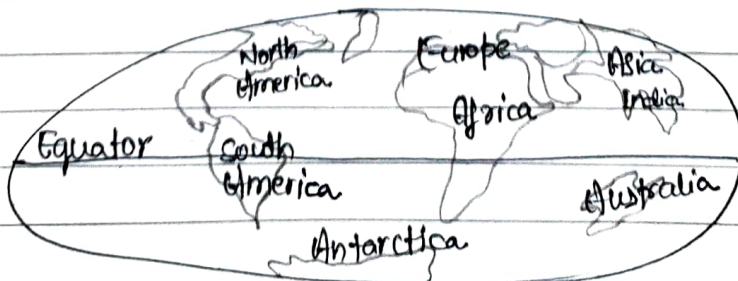 North
America
Europe
Asia
India
Africa
Equator
South
America
Australia
Antarctica